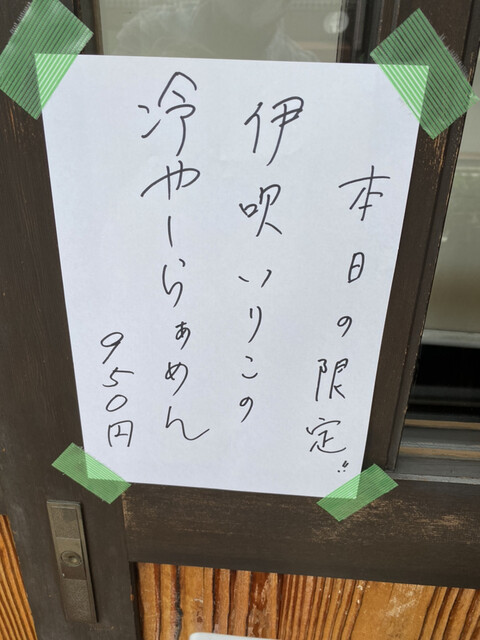 本日の限定‼
伊吹いりこの
冷やーらぁめん
950円